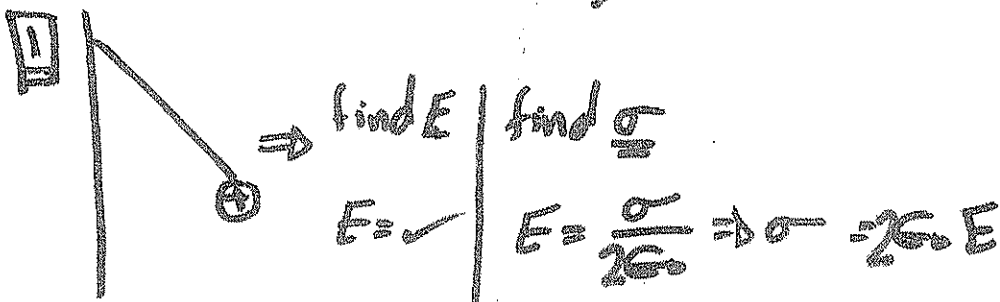 1
+
⇒ find E | find σ
E = ✓ | E = σ/2ε₀ ⇒ σ = 2ε₀ E